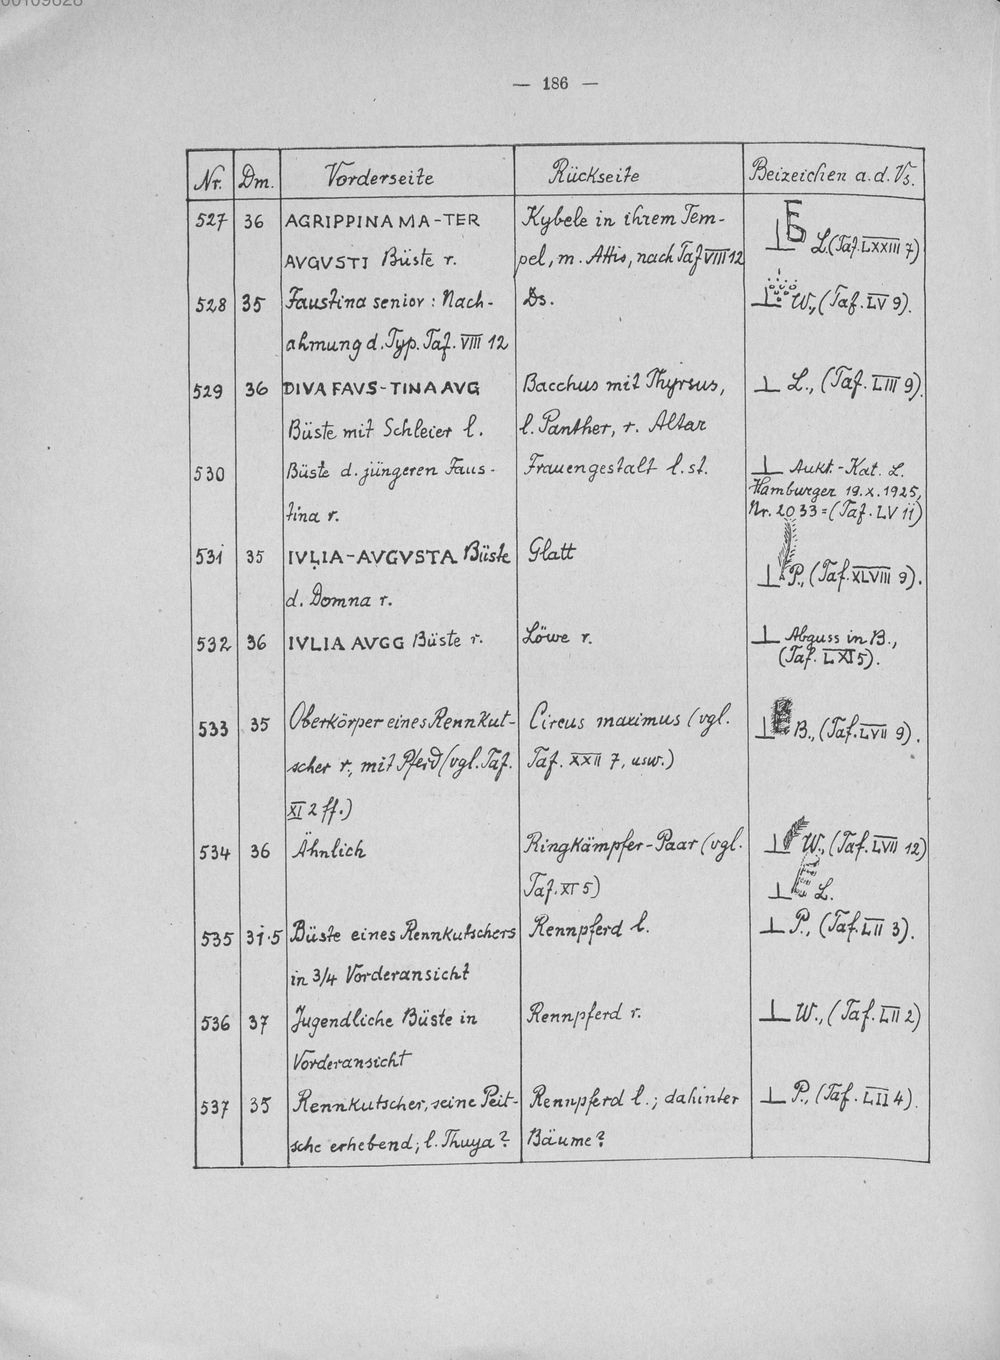 00109828
— 186 —
Nr. Dm. Vorderseite Rückseite Beizeichen a. d. Vs.
527 36 AGRIPPINA MA-TER Kybele in ihrem Tem-
AVGVSTI Büste r. pel, m. Attis, nach Taf VIII 12 L. (Taf. LXXIII 7)
528 35 Faustina senior: Nach- Ds. W., (Taf. LV 9).
ahmung d. Typ. Taf. VIII 12
529 36 DIVA FAVS-TINA AVG Bacchus mit Thyrsus, L., (Taf. LIII 9).
Büste mit Schleier l. l. Panther, r. Altar
530 Büste d. jüngeren Faus- Frauengestalt l. st. Aukt.-Kat. L.
Hamburger 19. X. 1925,
tina r. Nr. 2033 = (Taf. LV 11)
531 35 IVLIA-AVGVSTA Büste Glatt
d. Domna r. P., (Taf. XLVIII 9).
532 36 IVLIA AVGG Büste r. Löwe r. Abguss in B.,
(Taf. LXI 5).
533 35 Oberkörper eines Rennkut- Circus maximus (vgl. B., (Taf. LVII 9).
scher r., mit Pferd (vgl. Taf. Taf. XXII 7, usw.)
XI 2 ff.)
534 36 Ähnlich Ringkämpfer-Paar (vgl. W., (Taf. LVII 12)
Taf. XI 5) L.
535 31·5 Büste eines Rennkutschers Rennpferd l. P., (Taf. LII 3).
in 3/4 Vorderansicht
536 37 Jugendliche Büste in Rennpferd r. W., (Taf. LII 2)
Vorderansicht
537 35 Rennkutscher, seine Peit- Rennpferd l.; dahinter P., (Taf. LII 4).
sche erhebend; l. Thuya? Bäume?